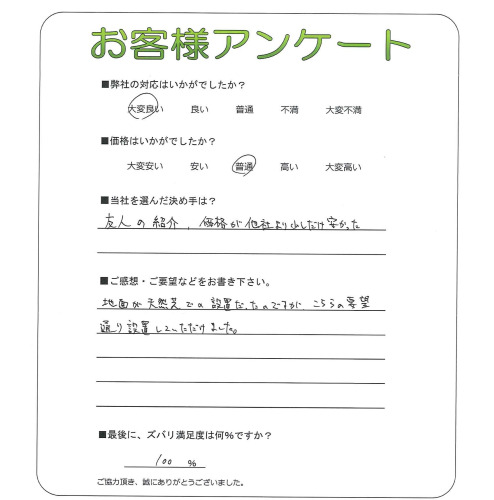 お客様アンケート
■弊社の対応はいかがでしたか？
大変良い 良い 普通 不満 大変不満
■価格はいかがでしたか？
大変安い 安い 普通 高い 大変高い
■当社を選んだ決め手は？
友人の紹介、価格が他社より少しだけ安かった
■ご感想・ご要望などをお書き下さい。
地面が天然芝での設置だったのですが、こちらの要望
通り設置していただけました。
■最後に、ズバリ満足度は何％ですか？
100 ％
ご協力頂き、誠にありがとうございました。